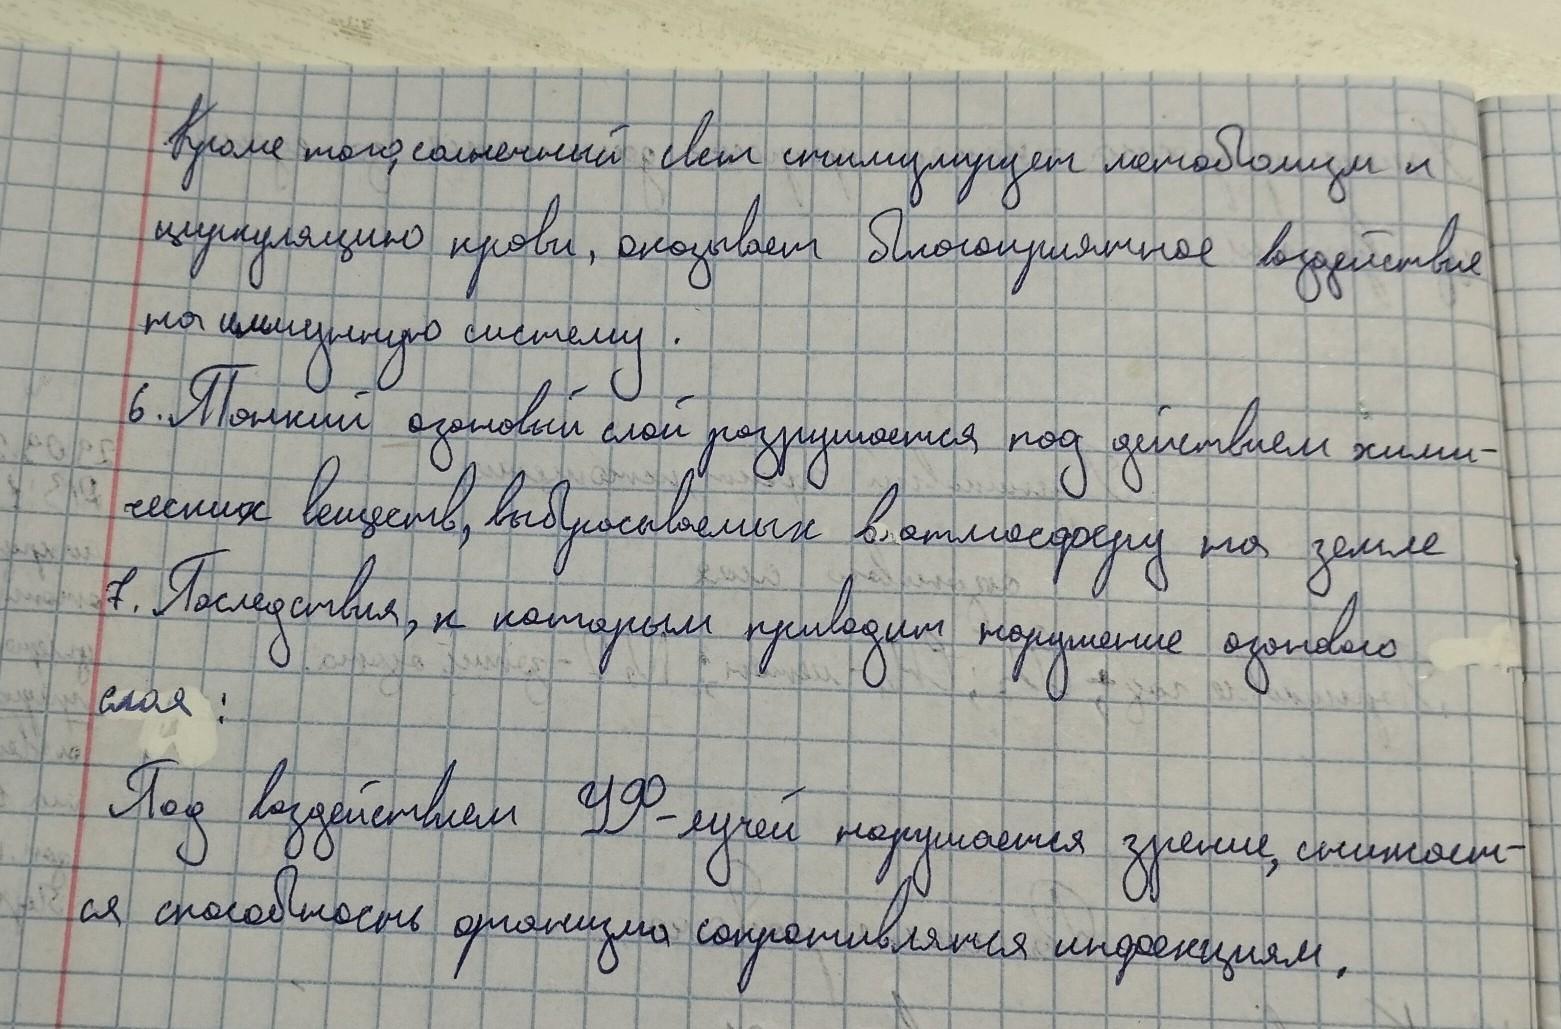 Кроме того, солнечный свет стимулирует метаболизм и
циркуляцию крови, оказывает благоприятное воздействие
на иммунную систему.
6. Тонкий озоновый слой разрушается под действием хими-
ческих веществ, выбрасываемых в атмосферу на земле
7. Последствия, к которым приводит нарушение озонового
слоя:
Под воздействием УФ-лучей нарушается зрение, снижает-
ся способность организма сопротивлятся инфекциям.